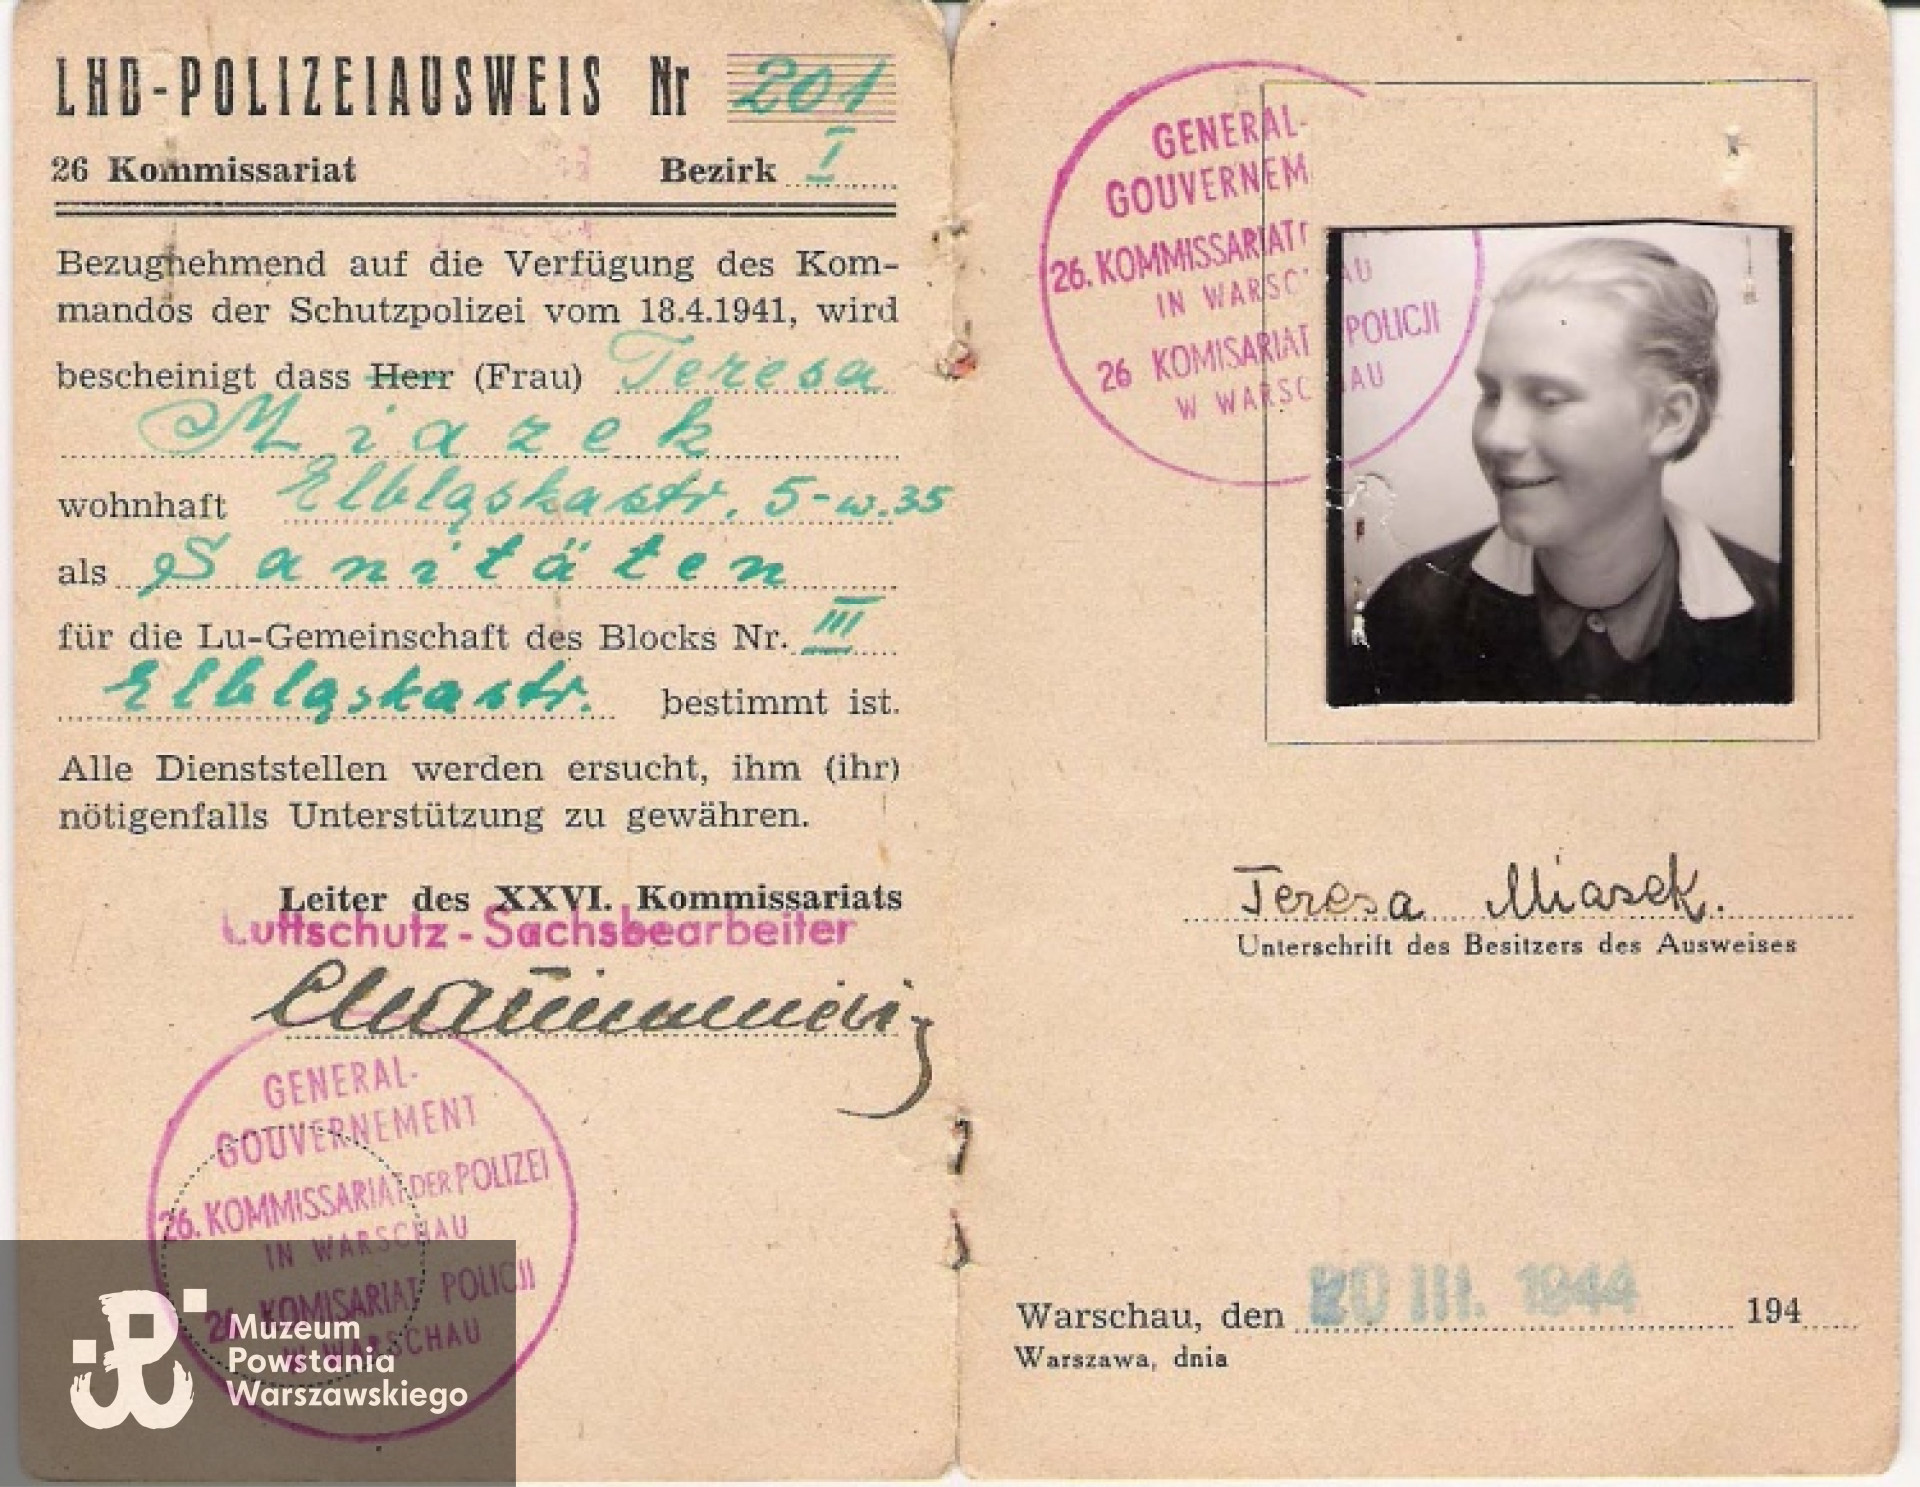 LHD-POLIZEIAUSWEIS Nr 201
26 Kommissariat Bezirk I
Bezugnehmend auf die Verfügung des Kom-
mandos der Schutzpolizei vom 18.4.1941, wird
bescheinigt dass Herr (Frau) Teresa
Miazek
wohnhaft Elbląskastr. 5-w.35
als Sanitäten
für die Lu-Gemeinschaft des Blocks Nr. III
Elbląskastr. bestimmt ist.
Alle Dienststellen werden ersucht, ihm (ihr)
nötigenfalls Unterstützung zu gewähren.
Leiter des XXVI. Kommissariats
Luftschutz-Sachsbearbeiter
GENERAL-
GOUVERNEMENT
26. KOMMISSARIAT DER POLIZEI
IN WARSCHAU
26 KOMISARIAT POLICJI
W WARSCHAU
Muzeum
Powstania
Warszawskiego
GENERAL-
GOUVERNEM
26. KOMMISSARIAT
IN WARSCHAU
26 KOMISARIAT POLICJI
W WARSCHAU
Teresa Miasek.
Unterschrift des Besitzers des Ausweises
Warschau, den 20 III. 1944 194
Warszawa, dnia